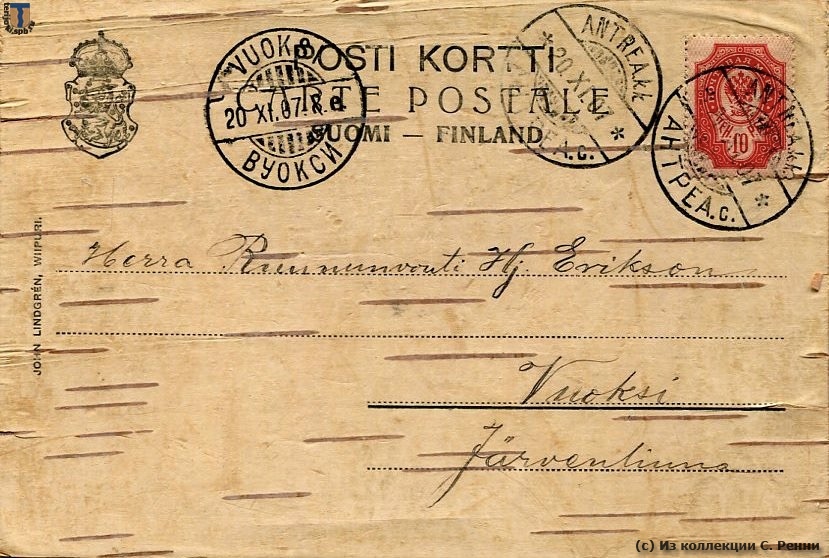 POSTI KORTTI
CARTE POSTALE
SUOMI — FINLAND
VUOKSI
20 XI.07. 8 e.
ВУОКСИ
ANTREA.kk
20 XI.07
ANTREA.kk
АНТРЕА.с.
10
Herra Ruununvouti Hj. Erikson
Vuoksi
Järvenlinna
JOHN LINDGRÉN, WIIPURI.
(с) Из коллекции С. Ренни